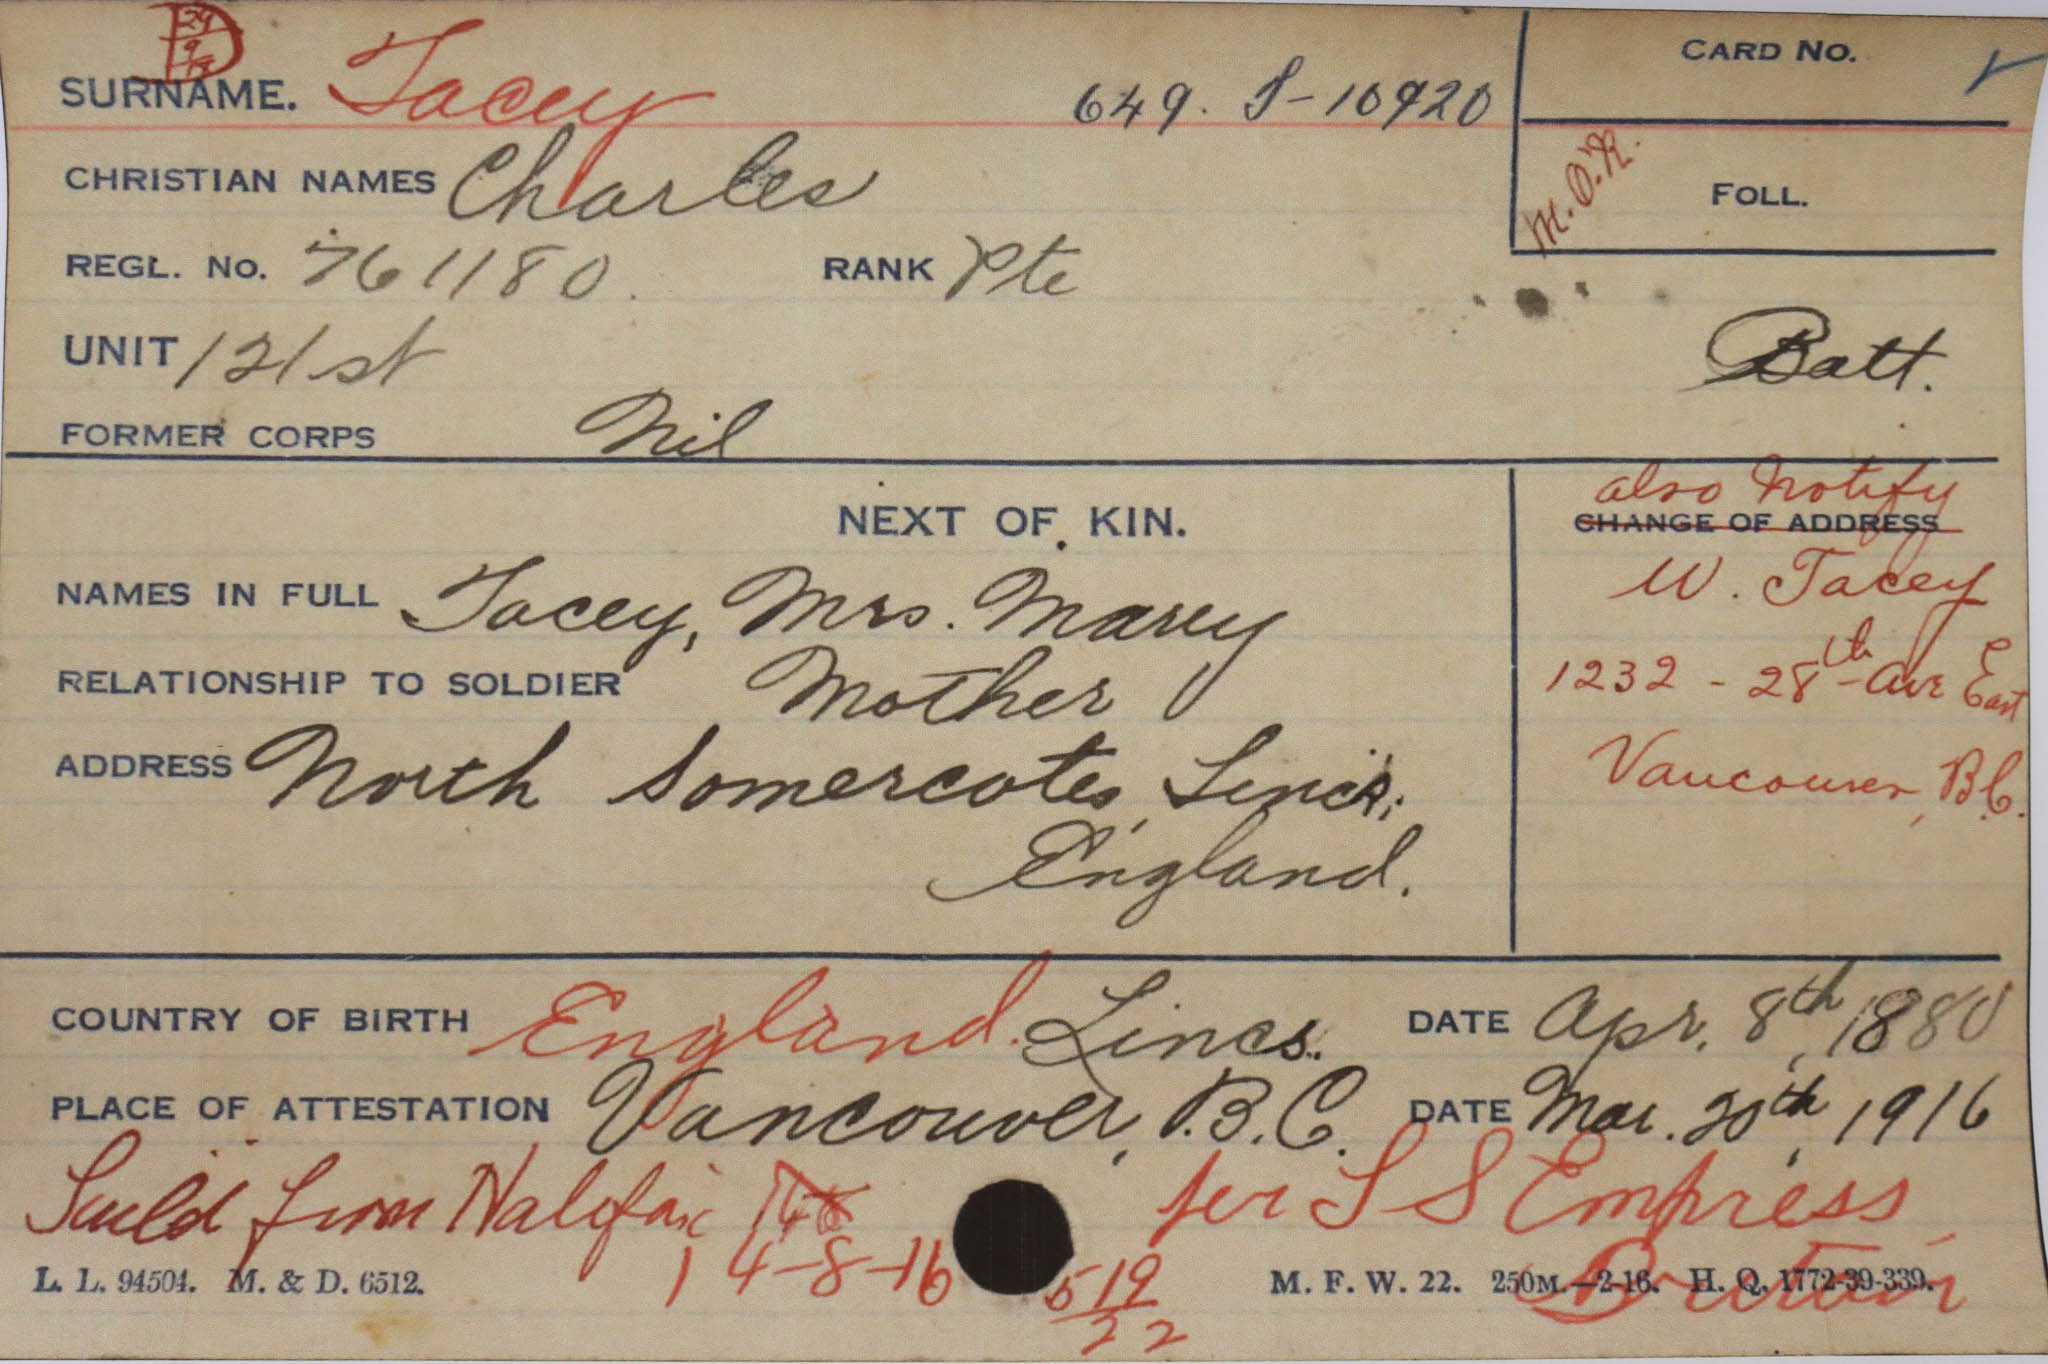 D 29 9 18
SURNAME. Tacey 649. T-10920 CARD No.
M.O.R.
CHRISTIAN NAMES Charles FOLL.
REGL. No. 761180. RANK Pte
UNIT 121st Batt.
FORMER CORPS Nil
NEXT OF KIN.
also notify
CHANGE OF ADDRESS
NAMES IN FULL Tacey, Mrs. Marey
W. Tacey
RELATIONSHIP TO SOLDIER Mother
1232 - 28th Ave East
ADDRESS North Somercotes, Lincs,
Vancouver, B.C.
England.
COUNTRY OF BIRTH England. Lincs. DATE Apr. 8th, 1880
PLACE OF ATTESTATION Vancouver, B.C. DATE Mar. 20th, 1916
Sail'd from Halifax per S S Empress
14-8-16 Britain
519
22
L. L. 94504. M. & D. 6512. M. F. W. 22. 250M.-2-16. H. Q. 1772-39-339.